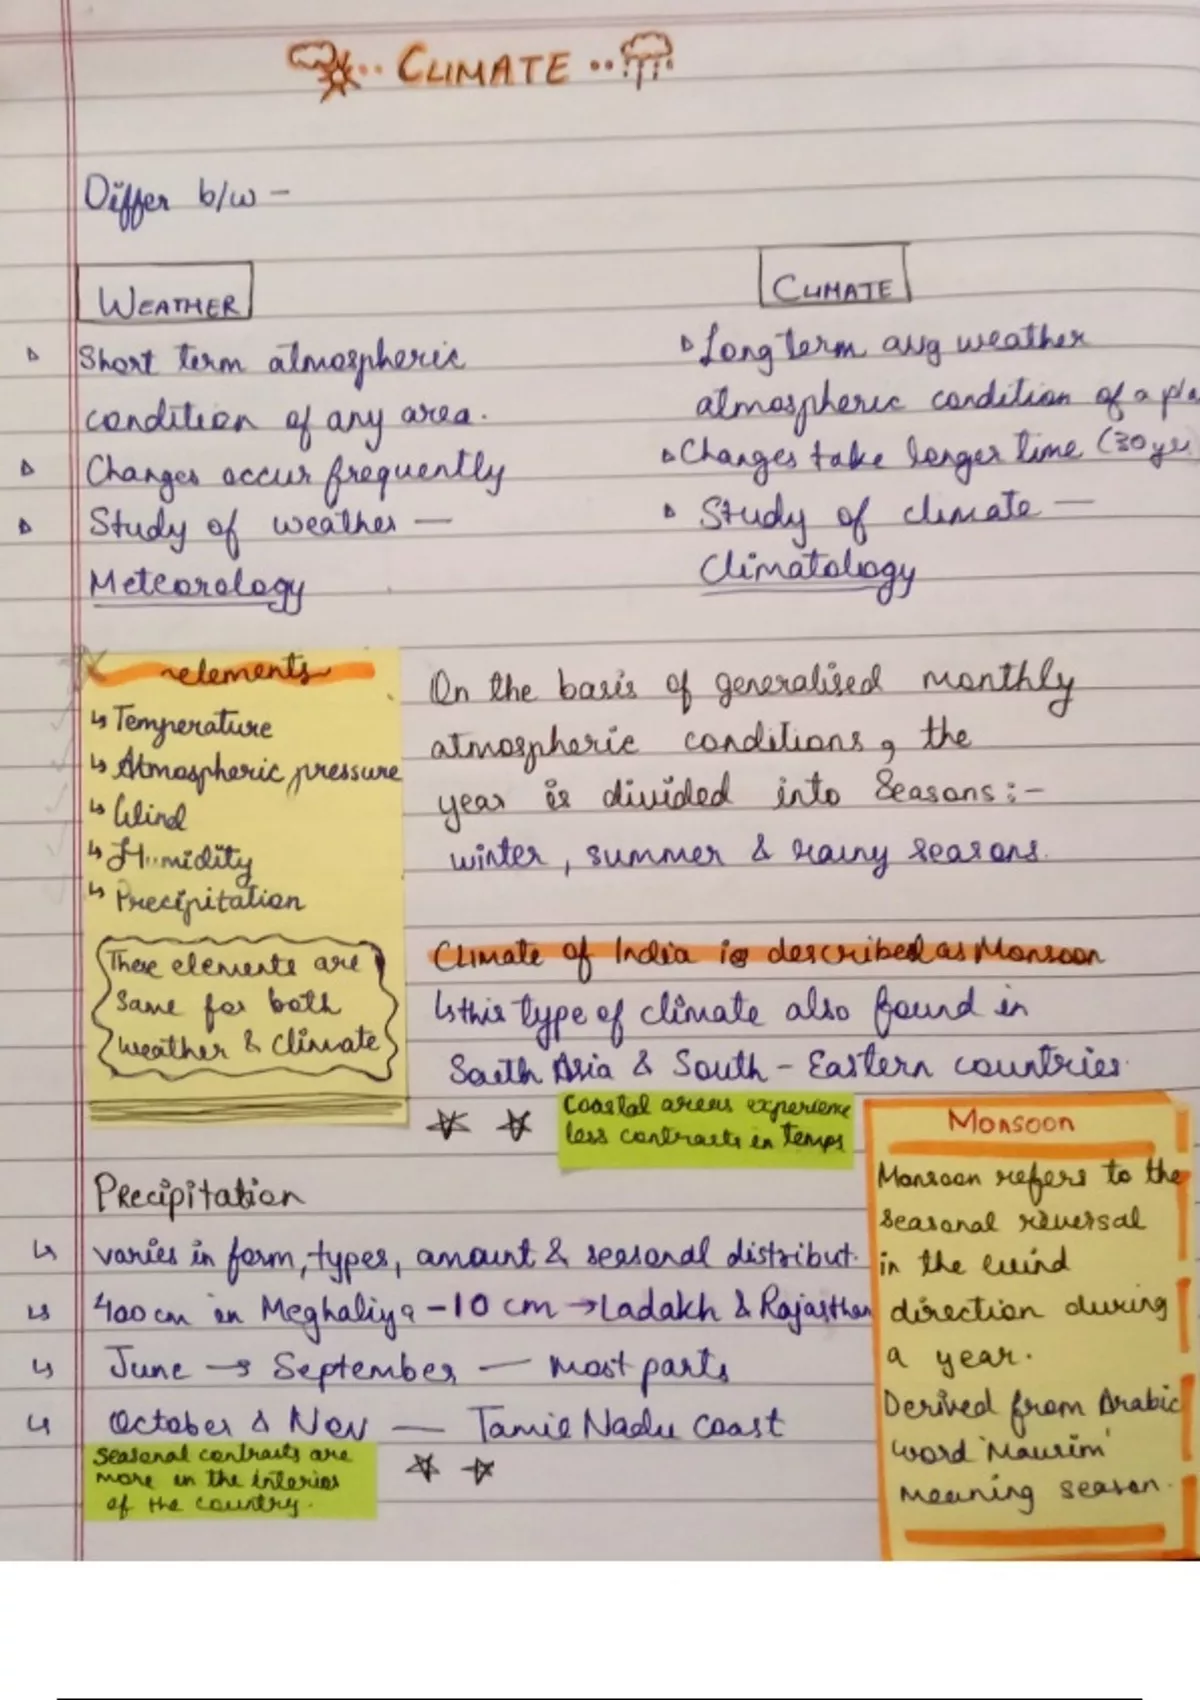 CLIMATE
Differ b/w -
WEATHER
Short term atmospheric
condition of any area.
Changes occur frequently
Study of weather —
Meteorology
CLIMATE
Long term avg weather
atmospheric condition of a pla
Changes take longer time (30 ye
Study of climate —
Climatology
elements
Temperature
Atmospheric pressure
Wind
Humidity
Precipitation
These elements are
same for both
weather & Climate
On the basis of generalised monthly
atmospheric conditions, the
year is divided into Seasons :-
winter, summer & rainy seasons.
Climate of India is described as Monsoon
this type of climate also found in
South Asia & South - Eastern countries.
Coastal areas experience
less contrasts in temps
Monsoon
Monsoon refers to the
seasonal reversal
in the wind
direction during
a year.
Derived from Arabic
word 'Mausim'
meaning season.
Precipitation
varies in form, types, amount & seasonal distribut.
400 cm in Meghaliya - 10 cm → Ladakh & Rajasthan
June → September — most parts
October & Nov — Tamil Nadu coast
Seasonal contrasts are
more in the interios
of the country.